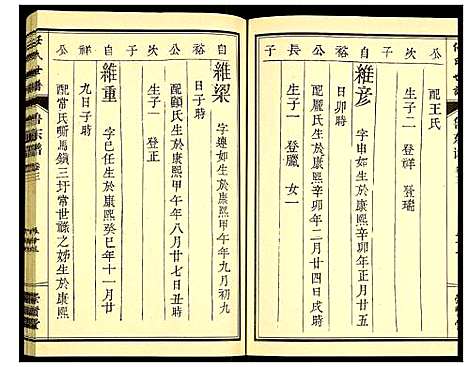 配王氏
生子二 登祥 登瑞
子
公
長
子
維彥
字申如生於康熙辛卯年正月廿五
日卯時
配嚴氏生於康熙辛卯年二月廿四日戌時
生子一 登臘 女一
自
裕
公
次
子
維梁
字遵如生於康熙甲午年九月初九
日子時
配顧氏生於康熙甲午年八月廿七日丑時
生子一 登正
自
裕
公
次
子
維重
字已任生於康熙癸巳年十一月廿
九日子時
配常氏嘶馬鎮三圩常世祿之姊生於康熙
氏世譜
魯宗譜
卷三